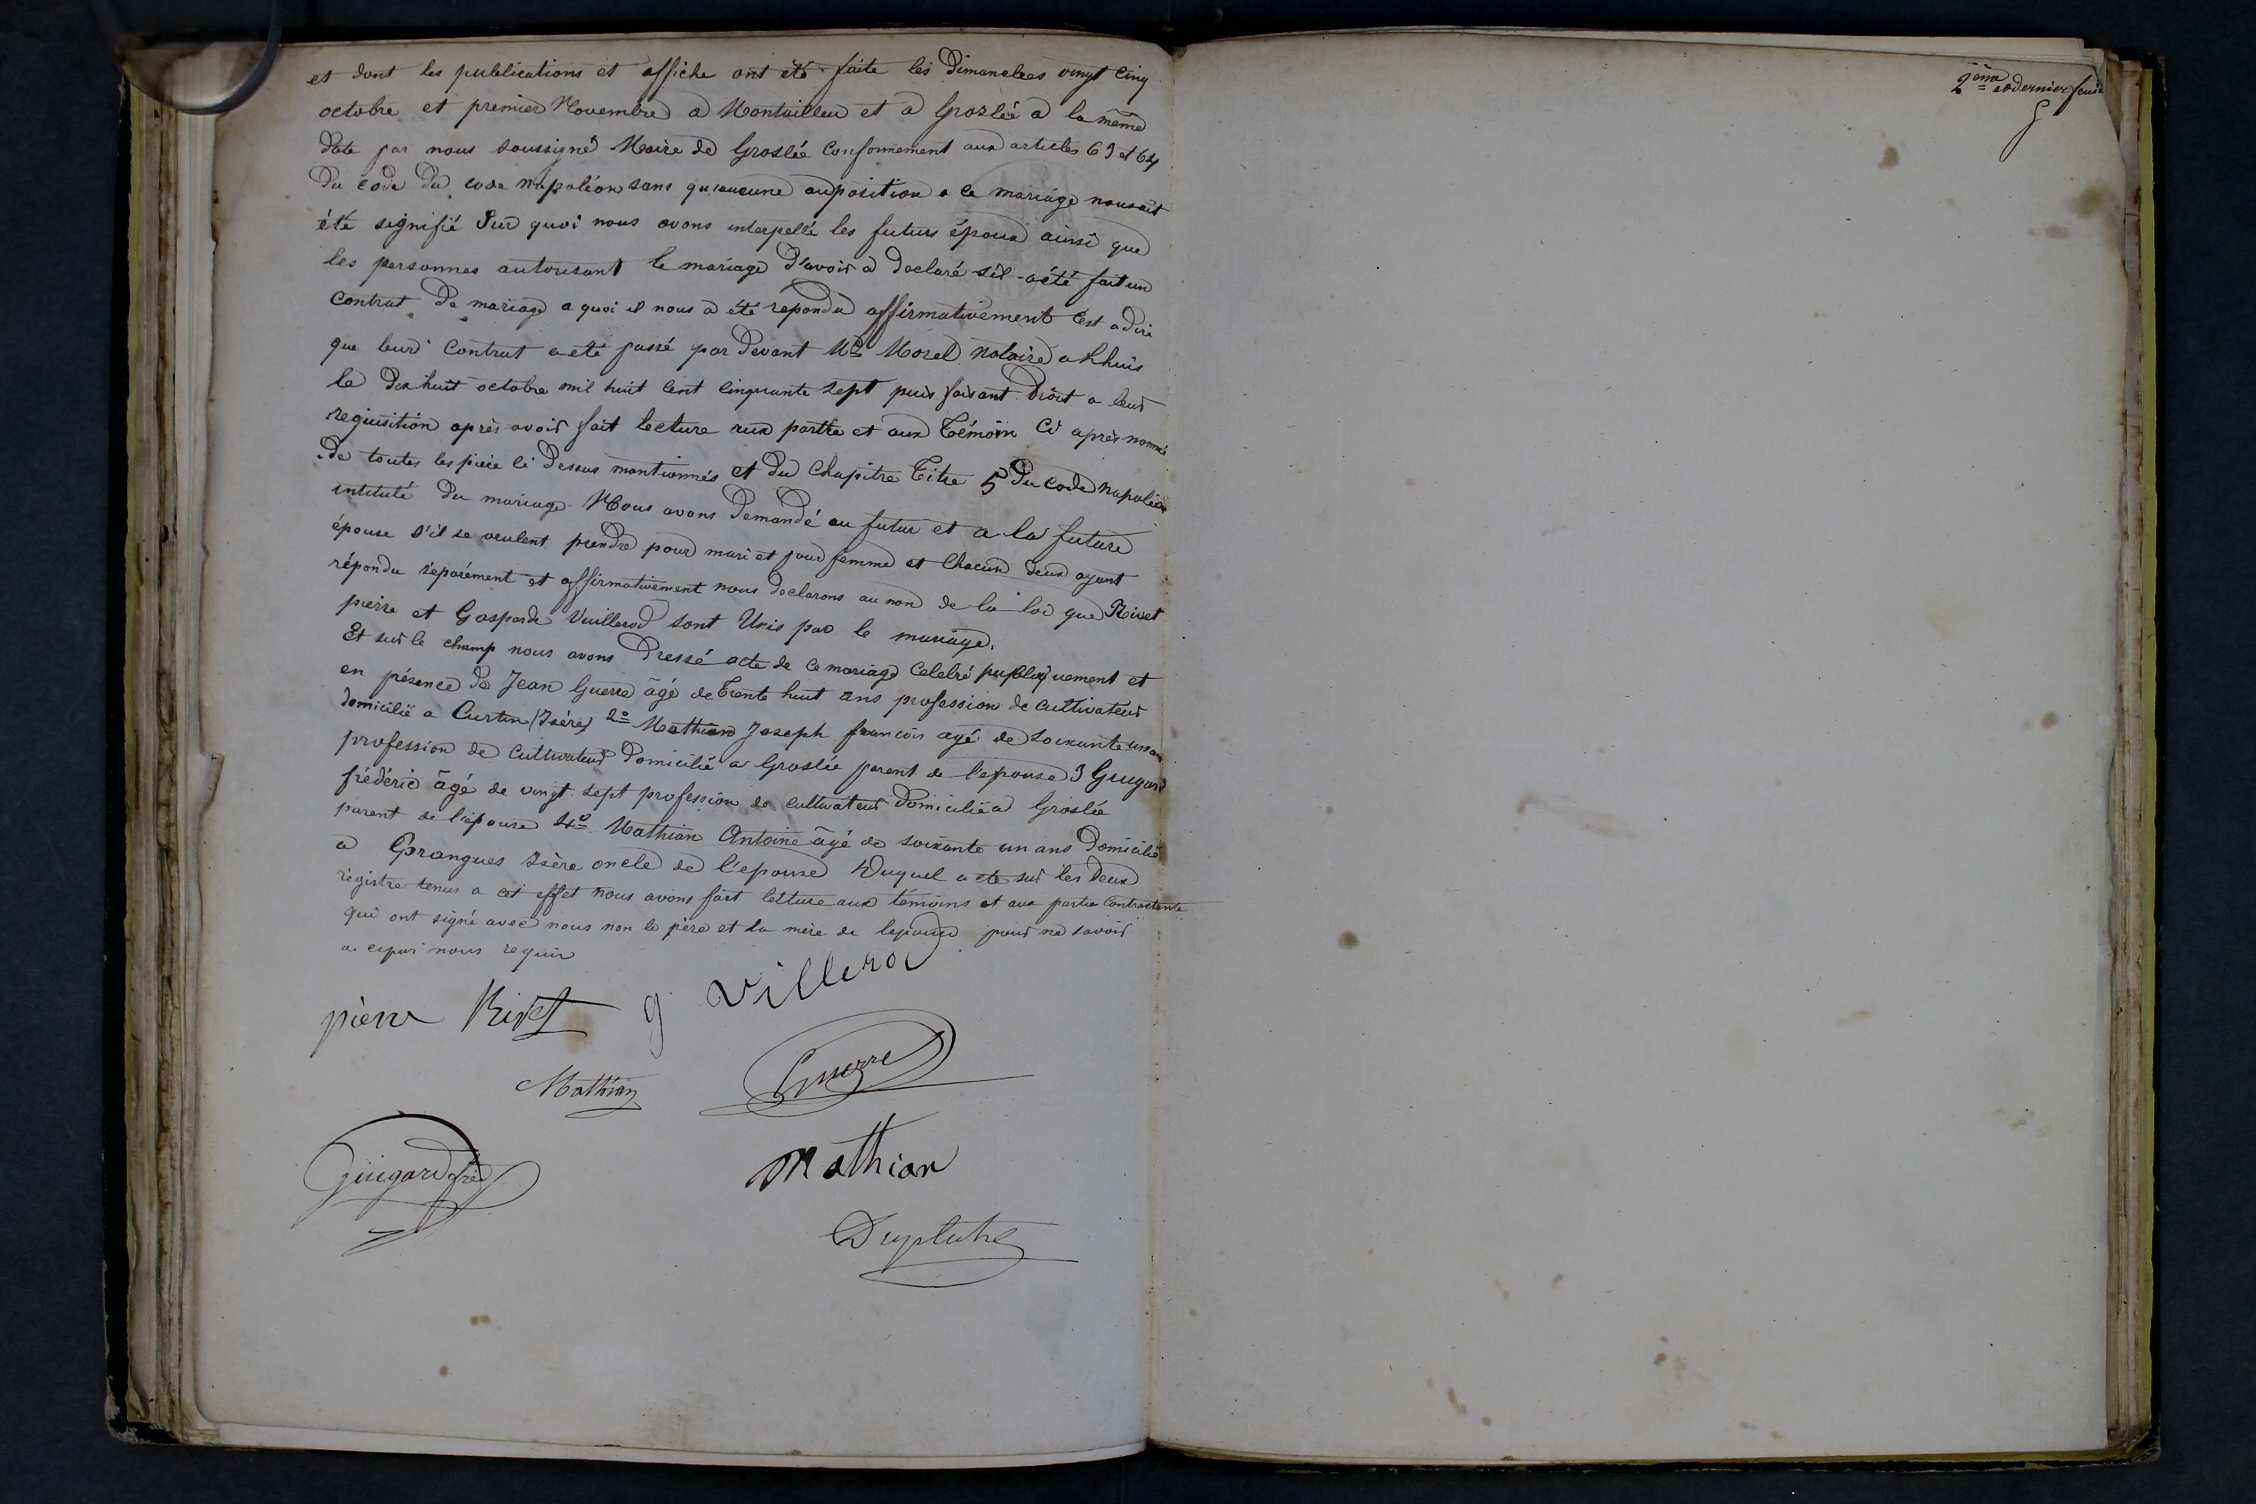 et dont les publications et affiche ont été faite les Dimanches vingt Cinq
octobre et premier Novembre a Montailleu et a Groslée a la même
date par nous soussigné Maire de Groslée Conformement aux articles 63 et 64
du code du code Napoléon sans qu'aucune auposition a ce mariage nous ait
été signifié Sur quoi nous avons interpellé les futurs époux ainsi que
les personnes autorisant le mariage d'avoir a declaré s'il a été fait un
contrat de mariage a quoi il nous a été repondu affirmativement Cest a dire
que leur Contrat a eté passé par devant Me Morel notaire a Lhuis
le dix huit octobre mil huit Cent Cinquante Sept puis faisant Droit a leur
requisition après avoir fait lecture aux partie et aux Témoin Ci après nommé
de toutes les pièce Ci Dessus mantionnés et du Chapitre Titre 5 Du Code Napoléon
intitulé du mariage Nous avons Demandé au futur et a la future
épouse s'il se veulent prendre pour mari et pour femme et Chacun deux ayant
répondu séparément et affirmativement nous declarons au nom de la loi que Rivet
pierre et Gasparde Vuillerod sont Unis par le mariage.
Et sur le champ nous avons Dressé acte de ce mariage Celebré publiquement et
en présence de Jean Guerre âgé de Trente huit ans profession de Cultivateur
domicilié a Curtin (Isère) 2º Mathian Joseph francois agé de soixante un ans
profession de Cultivateur Domicilié a Groslée parent de l'epouse 3 Guigard
frédéric âgé de vingt sept profession de cultivateur Domicilié a Groslée
parent de l'épouse 4º Mathian Antoine âgé de soixante un ans Domicilié
a Brangues Isère oncle de l'epouse Duquel acte sur les Deux
registre tenus a cet effet nous avons fait lecture aux témoins et aux partie Contractante
qui ont signé avec nous non le père et la mère de lepouse pour ne savoir
a ce par nous requis
pierre Rivet g Villerod
Mathian Guerre
Guigard fréd
Mathian
Duplatre
2ème et dernier feuil